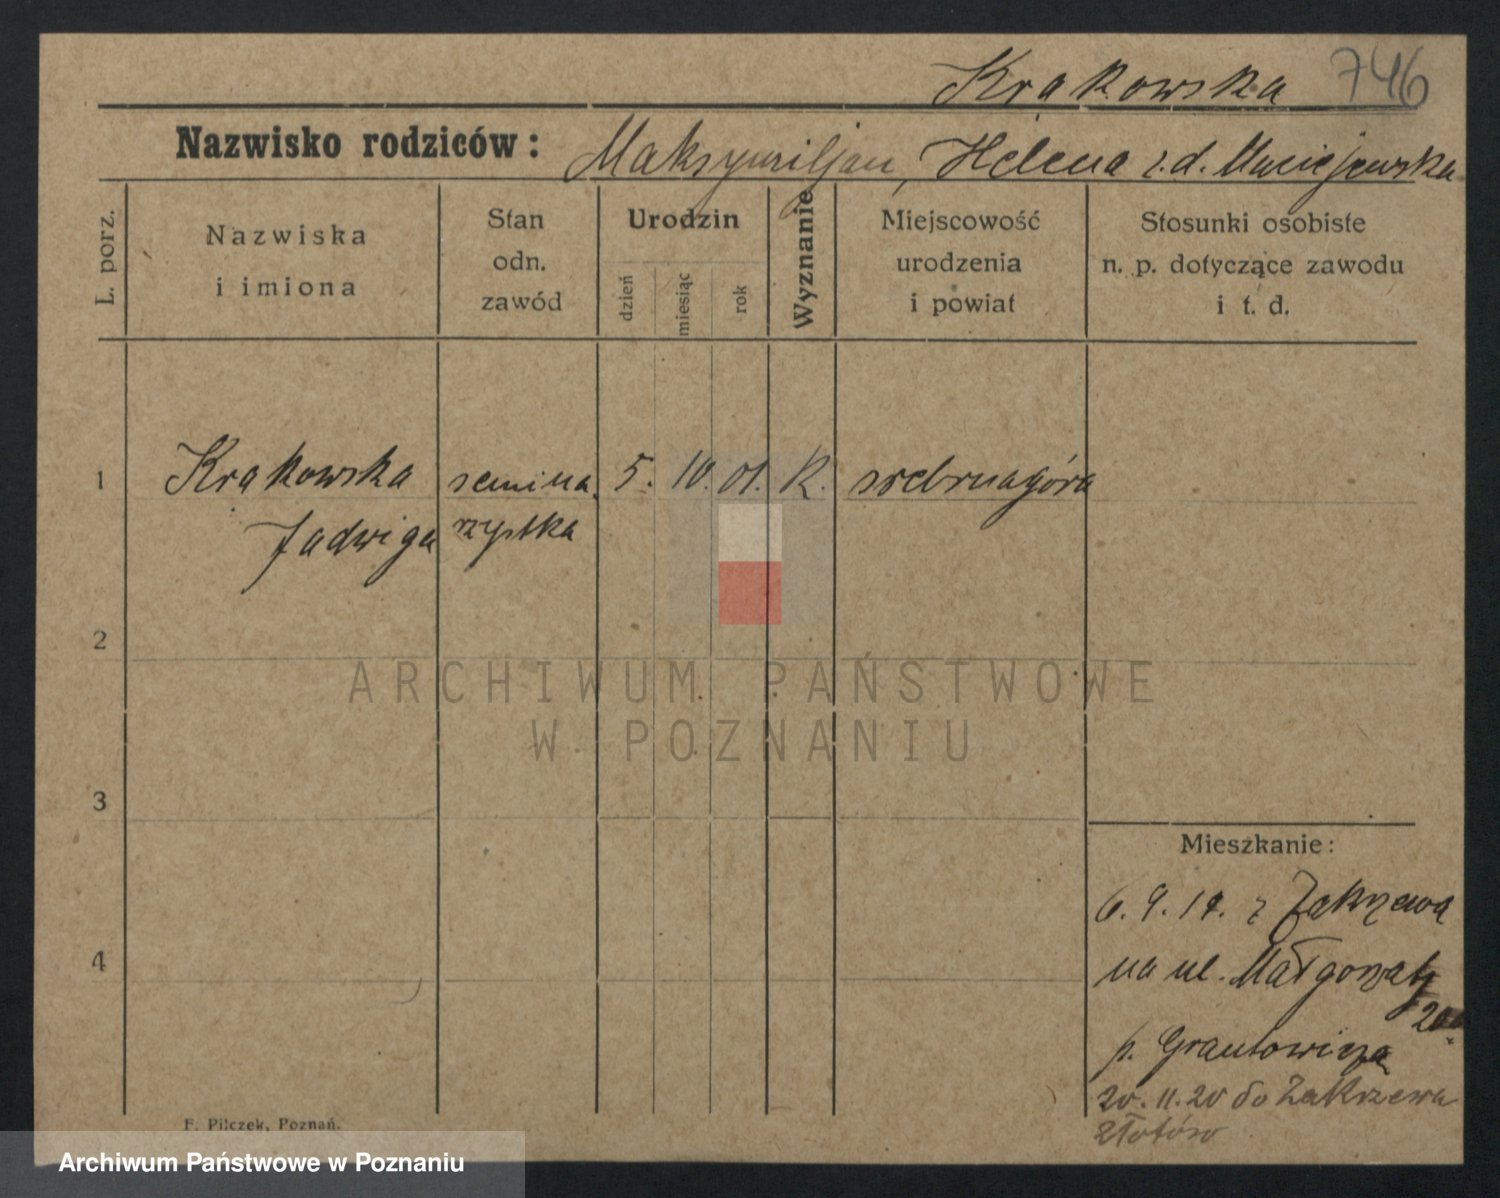 Krakowska 746
Nazwisko rodziców: Maksymiljan, Helena z.d. Maciejewska
L. porz.
Nazwiska
i imiona
Stan
odn.
zawód
Urodzin
dzień
miesiąc
rok
Wyznanie
Miejscowość
urodzenia
i powiat
Stosunki osobiste
n. p. dotyczące zawodu
i t. d.
1 Krakowska semina 5. 10. 01. R. srebrnagóra
Jadwiga rzystka
2
ARCHIWUM PAŃSTWOWE
W POZNANIU
3
Mieszkanie:
6.9.19. z Zakrzewa
4
na ul. Małgorzaty
20
p. Grantowicza
20.11.20 do Zakrzewa
Złotów
F. Pilczek, Poznań.
Archiwum Państwowe w Poznaniu